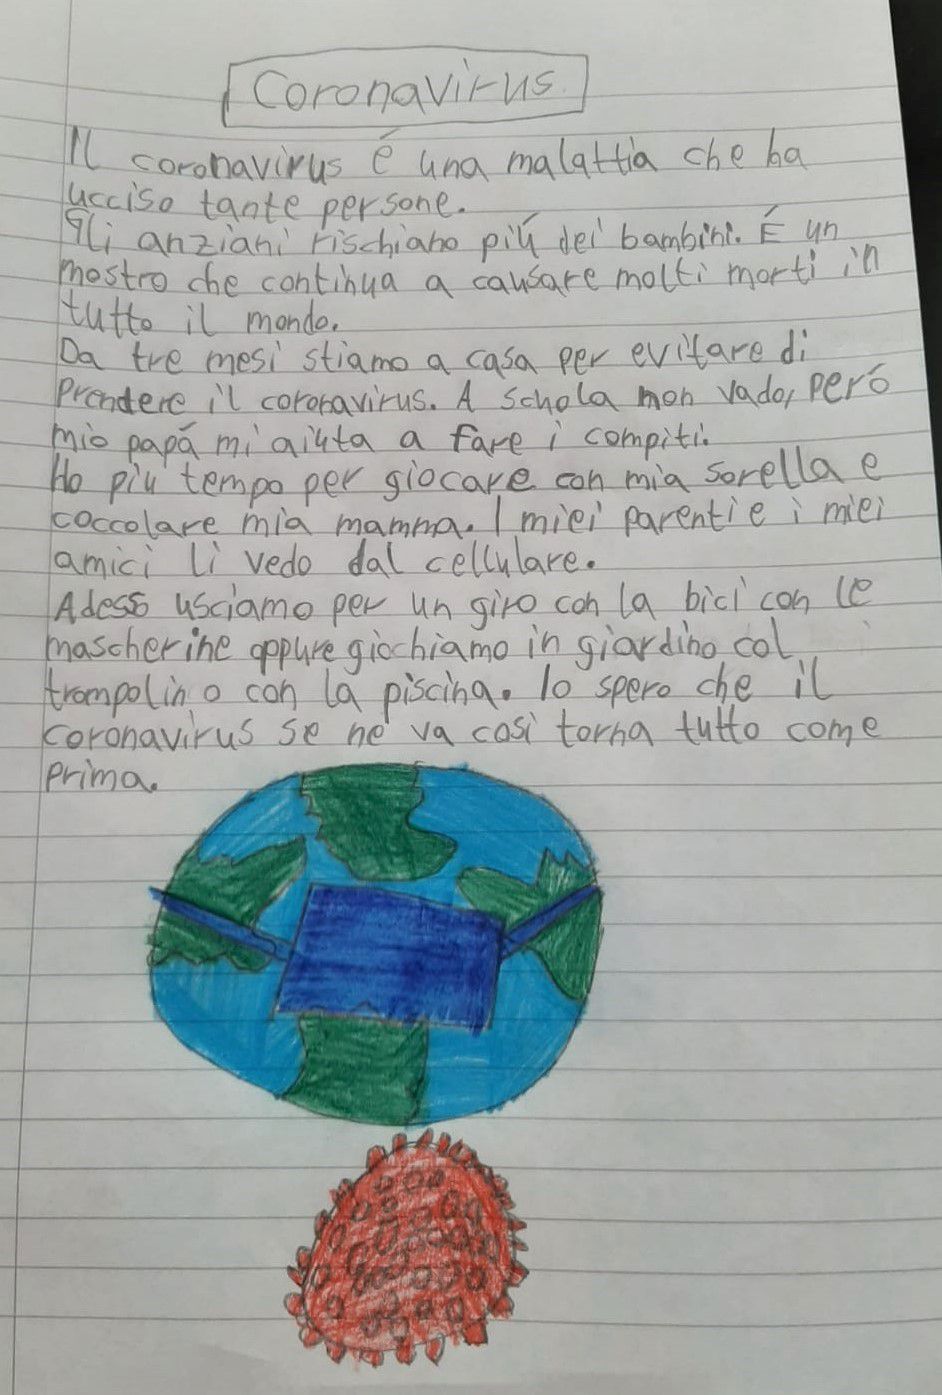 Coronavirus
Il coronavirus é una malattia che ha
ucciso tante persone.
Gli anziani rischiano piú dei bambini. É un
mostro che continua a causare molti morti in
tutto il mondo.
Da tre mesi stiamo a casa per evitare di
prendere il coronavirus. A schola non vado, peró
mio papá mi aiuta a fare i compiti.
Ho piu tempo per giocare con mia sorella e
coccolare mia mamma. I miei parenti e i miei
amici li vedo dal cellulare.
Adesso usciamo per un giro con la bici con le
mascherine oppure giochiamo in giardino col
trampolino con la piscina. Io spero che il
coronavirus se ne va cosi torna tutto come
prima.